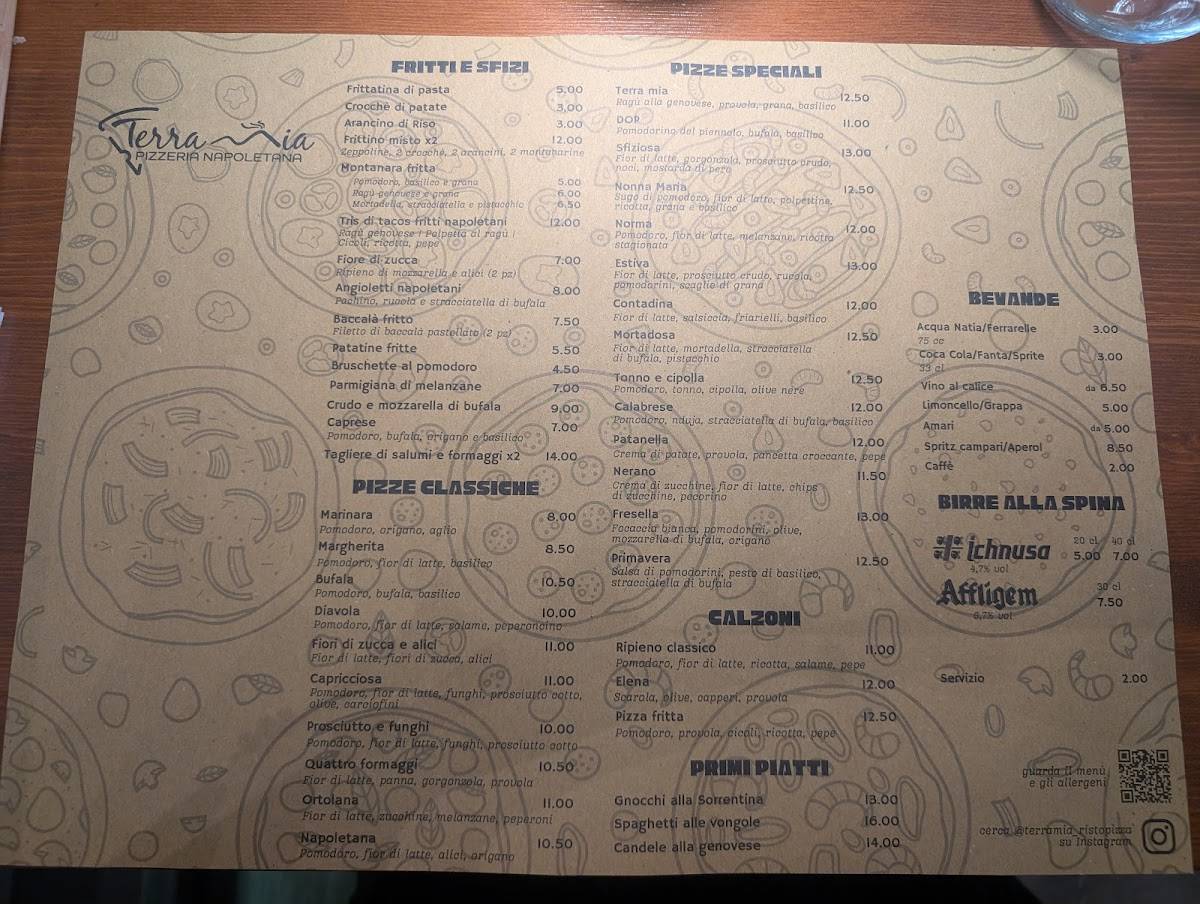 Terra Mia
PIZZERIA NAPOLETANA
FRITTI E SFIZI
Frittatina di pasta 5.00
Crocchè di patate 3.00
Arancino di Riso 3.00
Frittino misto x2 12.00
Zeppoline, 2 crocchè, 2 arancini, 2 montanarine
Montanara fritta
Pomodoro, basilico e grana 5.00
Ragù genovese e grana 6.00
Mortadella, stracciatella e pistacchio 6.50
Tris di tacos fritti napoletani 12.00
Ragù genovese | Polpetta al ragù |
Cicoli, ricotta, pepe
Fiore di zucca 7.00
Ripieno di mozzarella e alici (2 pz)
Angioletti napoletani 8.00
Pachino, rucola e stracciatella di bufala
Baccalà fritto 7.50
Filetto di baccalà pastellato (2 pz)
Patatine fritte 5.50
Bruschette al pomodoro 4.50
Parmigiana di melanzane 7.00
Crudo e mozzarella di bufala 9.00
Caprese 7.00
Pomodoro, bufala, origano e basilico
Tagliere di salumi e formaggi x2 14.00
PIZZE CLASSICHE
Marinara 8.00
Pomodoro, origano, aglio
Margherita 8.50
Pomodoro, fior di latte, basilico
Bufala 10.50
Pomodoro, bufala, basilico
Diavola 10.00
Pomodoro, fior di latte, salame, peperoncino
Fiori di zucca e alici 11.00
Fior di latte, fiori di zucca, alici
Capricciosa 11.00
Pomodoro, fior di latte, funghi, prosciutto cotto,
olive, carciofini
Prosciutto e funghi 10.00
Pomodoro, fior di latte, funghi, prosciutto cotto
Quattro formaggi 10.50
Fior di latte, panna, gorgonzola, provola
Ortolana 11.00
Fior di latte, zucchine, melanzane, peperoni
Napoletana 10.50
Pomodoro, fior di latte, alici, origano
PIZZE SPECIALI
Terra mia 12.50
Ragù alla genovese, provola, grana, basilico
DOP 11.00
Pomodorino del piennolo, bufala, basilico
Sfiziosa 13.00
Fior di latte, gorgonzola, prosciutto crudo,
noci, mostarda di pere
Nonna Maria 12.50
Sugo di pomodoro, fior di latte, polpettine,
ricotta, grana e basilico
Norma 12.00
Pomodoro, fior di latte, melanzane, ricotta
stagionata
Estiva 13.00
Fior di latte, prosciutto crudo, rucola,
pomodorini, scaglie di grana
Contadina 12.00
Fior di latte, salsiccia, friarielli, basilico
Mortadosa 12.50
Fior di latte, mortadella, stracciatella
di bufala, pistacchio
Tonno e cipolla 12.50
Pomodoro, tonno, cipolla, olive nere
Calabrese 12.00
Pomodoro, nduja, stracciatella di bufala, basilico
Patanella 12.00
Crema di patate, provola, pancetta croccante, pepe
Nerano 11.50
Crema di zucchine, fior di latte, chips
di zucchine, pecorino
Fresella 13.00
Focaccia bianca, pomodorini, olive,
mozzarella di bufala, origano
Primavera 12.50
Salsa di pomodorini, pesto di basilico,
stracciatella di bufala
CALZONI
Ripieno classico 11.00
Pomodoro, fior di latte, ricotta, salame, pepe
Elena 12.00
Scarola, olive, capperi, provola
Pizza fritta 12.50
Pomodoro, provola, cicoli, ricotta, pepe
PRIMI PIATTI
Gnocchi alla Sorrentina 13.00
Spaghetti alle vongole 16.00
Candele alla genovese 14.00
BEVANDE
Acqua Natia/Ferrarelle 3.00
75 cc
Coca Cola/Fanta/Sprite 3.00
33 cl
Vino al calice da 6.50
Limoncello/Grappa 5.00
Amari da 5.00
Spritz campari/Aperol 8.50
Caffè 2.00
BIRRE ALLA SPINA
20 cl 40 cl
ichnusa 5.00 7.00
4,7% vol
30 cl
Affligem 7.50
6,7% vol
Servizio 2.00
guarda il menù
e gli allergeni
cerca @terramia_ristopizza
su Instagram